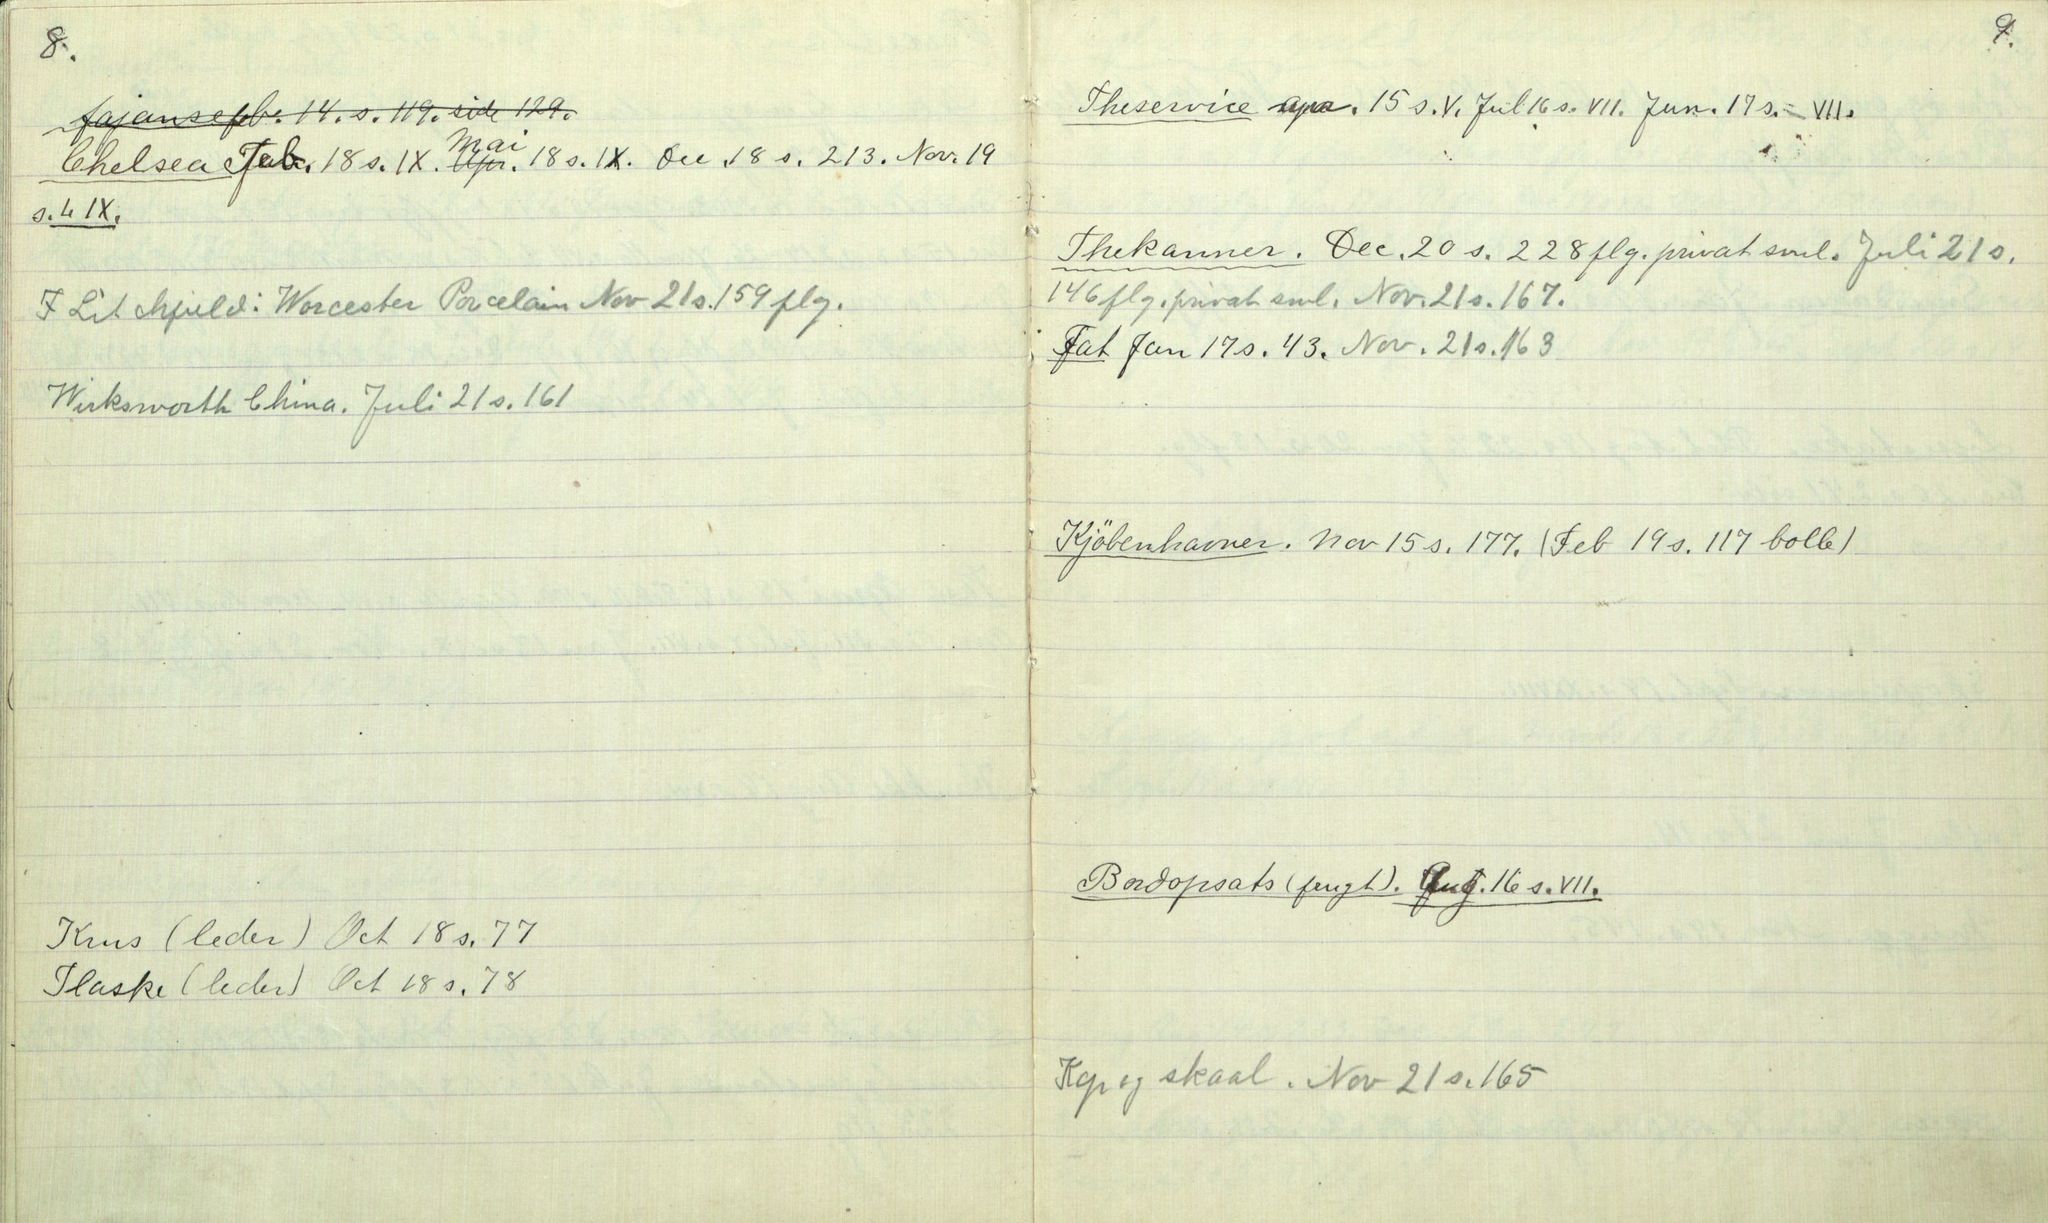 8.
fajanse feb. 14. s. 119. side 129.
Mai
Chelsea Feb. 18 s. IX. Apr. 18 s. IX. Dec. 18 s. 213. Nov. 19
s. 4 IX.
F Litchfield: Worcester Porcelain Nov 21 s. 159 flg.
Wirksworth China. Juli 21 s. 161
Krus (leder) Oct 18 s. 77
Flaske (leder) Oct 18 s. 78
9.
Theservice apr. 15 s. V. Jul 16 s. VII. Jun. 17 s. VII.
Thekanner. Dec. 20 s. 228 flg. privat sml. Juli 21 s.
146 flg. privat sml. Nov. 21 s. 167.
Fat Jan 17 s. 43. Nov. 21 s. 163
Kjöbenhavner. Nov 15 s. 177. (Feb 19 s. 117 bolle)
Bordopsats (frugt). Aug. 16 s. VII.
Kop og skaal. Nov 21 s. 165